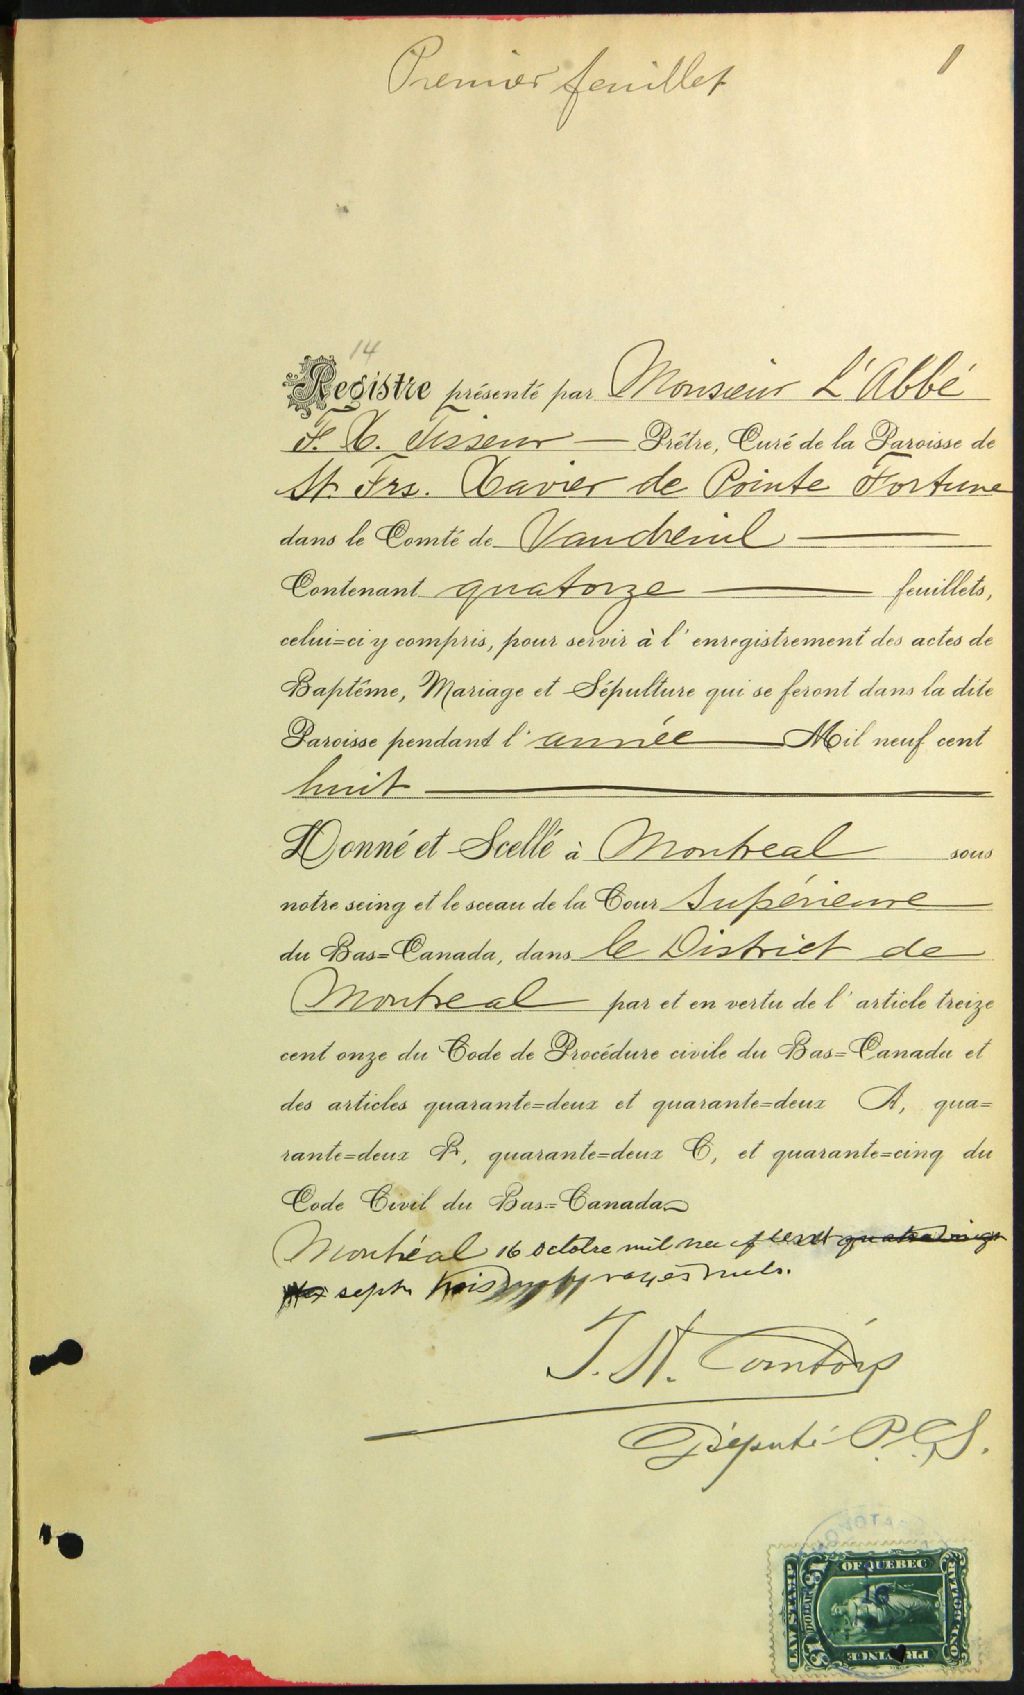 Premier feuillet
1
14
Registre présenté par Monsieur L'Abbé
F. X. Tisseur — Prêtre, Curé de la Paroisse de
St. Frs. Xavier de Pointe Fortune
dans le Comté de Vaudreuil —
Contenant quatorze — feuillets,
celui=ci y compris, pour servir à l'enregistrement des actes de
Baptême, Mariage et Sépulture qui se feront dans la dite
Paroisse pendant l'année — Mil neuf cent
huit —
Donné et Scellé à Montreal sous
notre seing et le sceau de la Cour Supérieure
du Bas=Canada, dans le District de
Montreal par et en vertu de l'article treize
cent onze du Code de Procédure civile du Bas=Canada et
des articles quarante=deux et quarante=deux A, qua=
rante=deux B, quarante=deux C, et quarante=cinq du
Code Civil du Bas=Canada
Montréal 16 Octobre mil neuf cent quatre vingt
sept. trois rayés nuls.
J. A. Comtois
Député P.C.S.
LAW STAMP
OF QUEBEC
$1 DOLLAR $1
ONE DOLLAR
PROVINCE